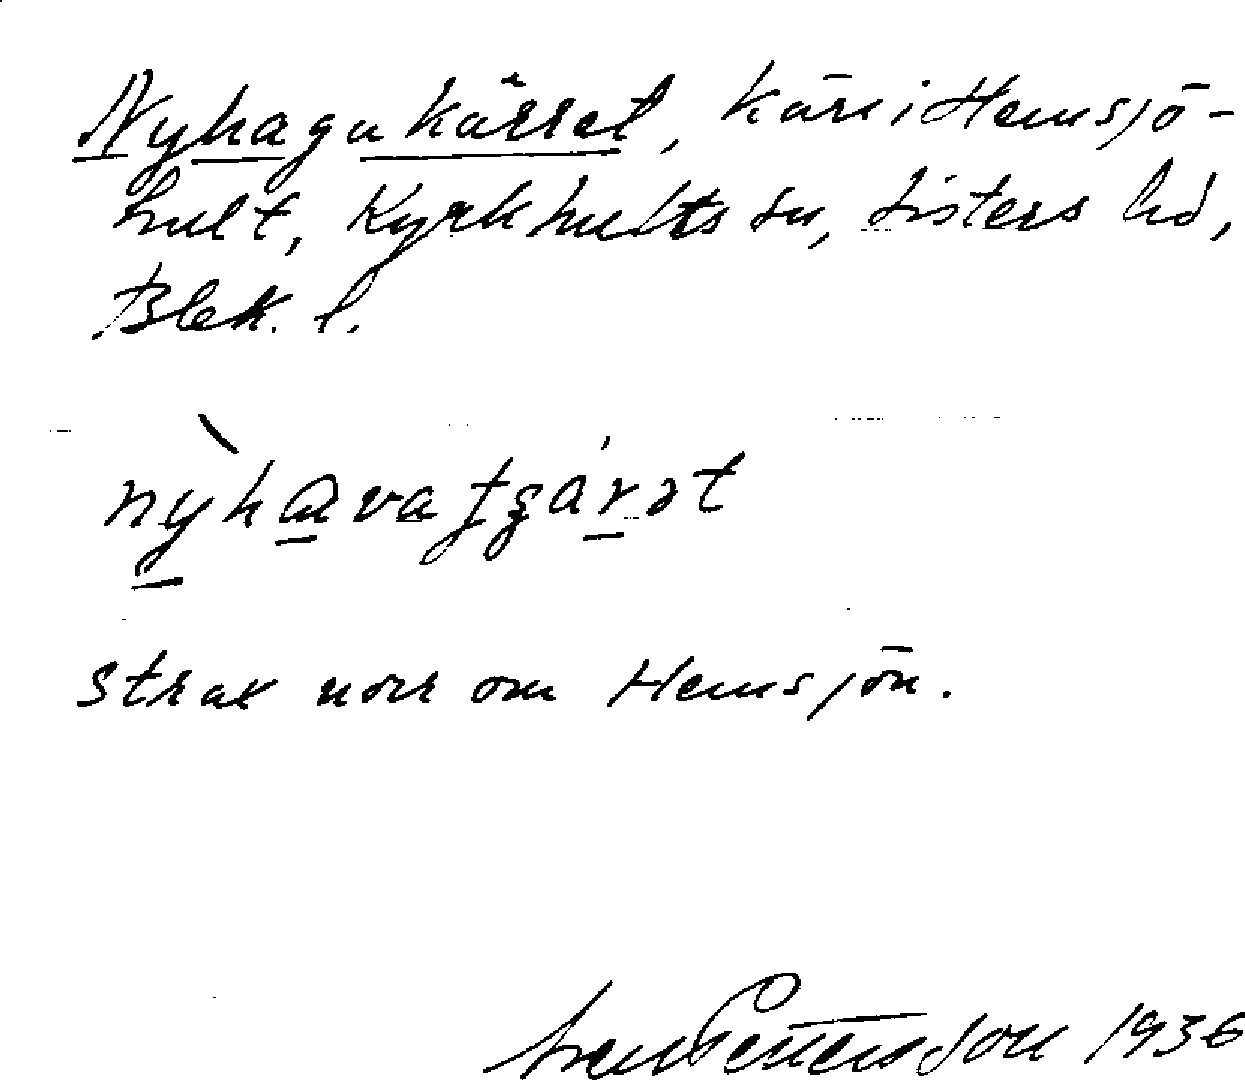 Nyhagakärret, kärr i Hemsjö-
hult, Kyrkhults sn, Listers hd,
Blek. l.
strax norr om Hemsjön.
Pettersson 1936